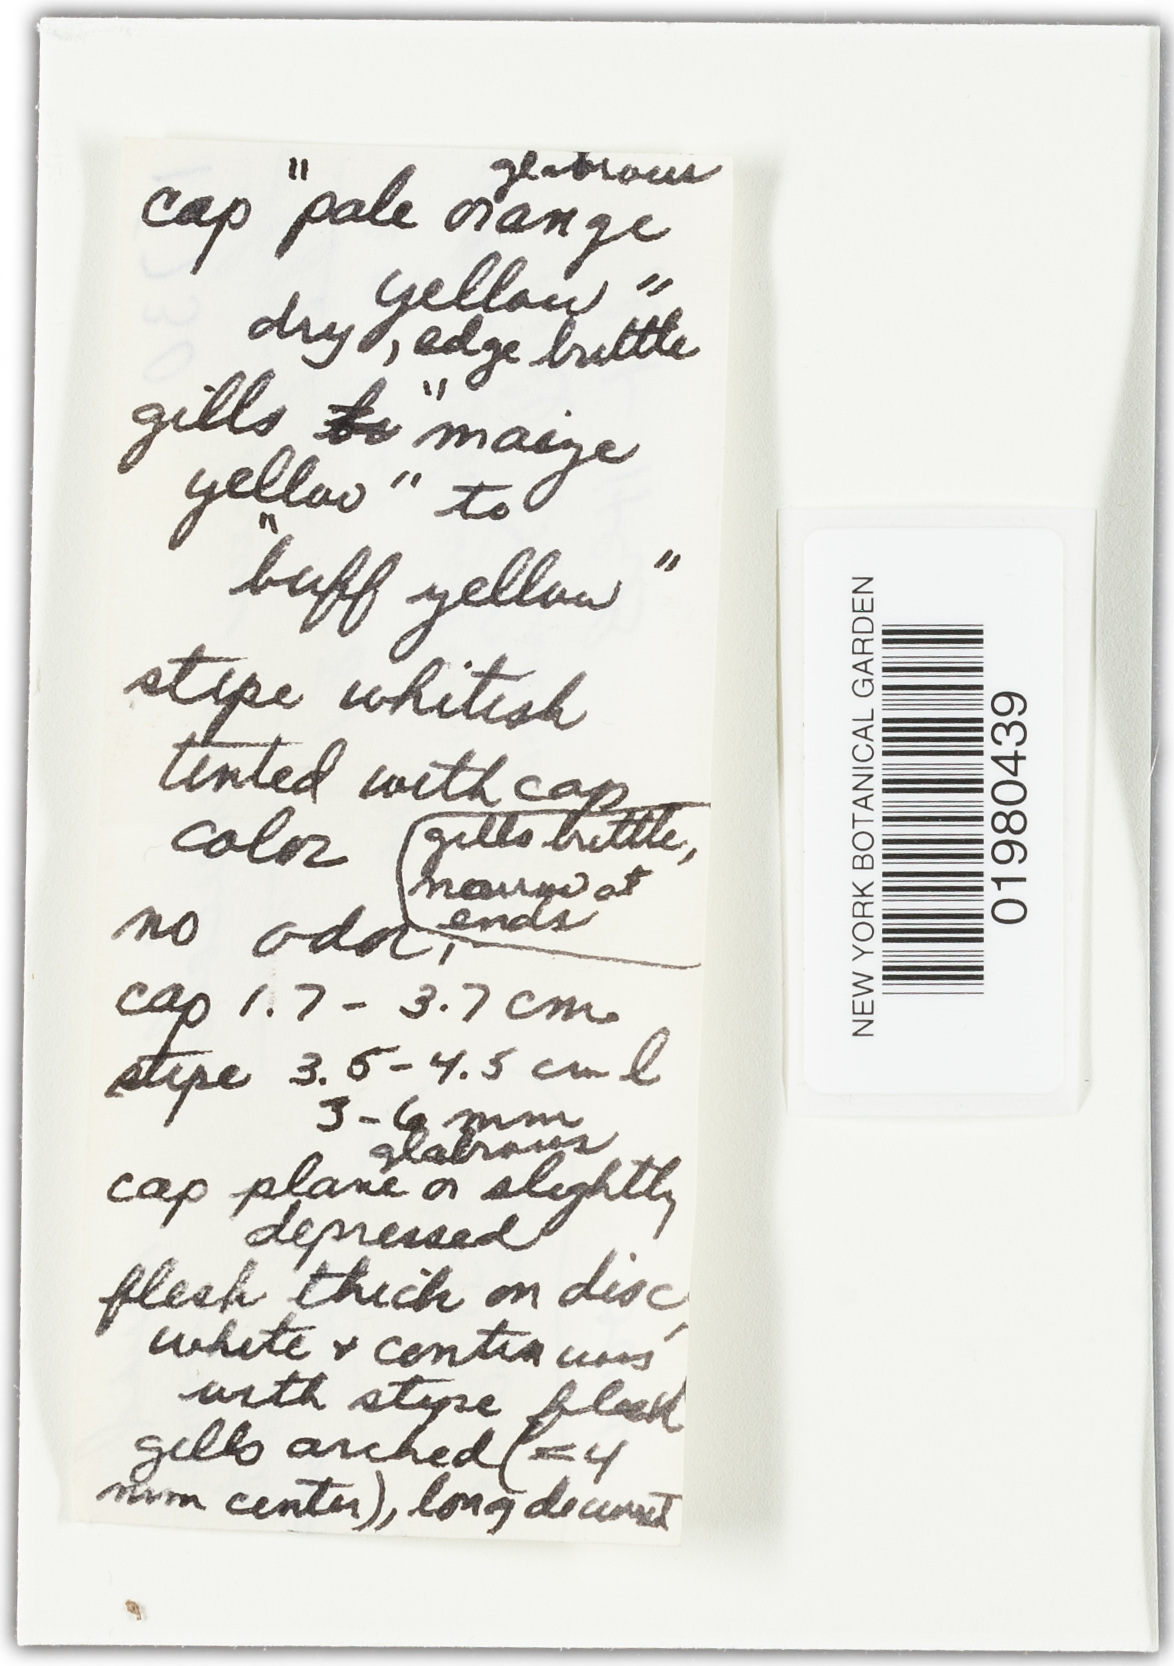 glabrous
cap "pale orange
yellow"
dry, edge brittle
gills to "maize
yellow" to
"buff yellow"
stipe whitish
tinted with cap
color
gills brittle,
narrow at
ends
no odor,
cap 1.7 - 3.7 cm
stipe 3.5-4.5 cm l
3-6 mm
glabrous
cap plane or slightly
depressed
flesh thick on disc,
white & continuous
with stipe flesh
gills arched (=4
mm center), long decurrent
NEW YORK BOTANICAL GARDEN
01980439